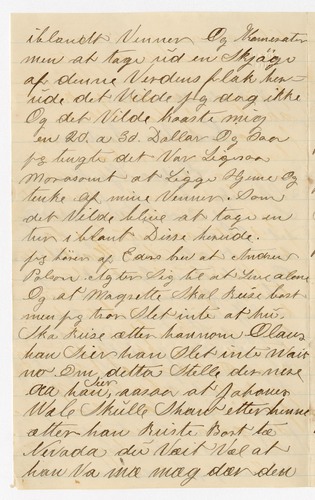 iblandt Venner Og Kamerater
men at tage ud en Skjøge
af denne Verdens plak her-
ude det Vilde jeg dog ikke
Og det Vilde kaaste mig
en 20. a 30. Dallar Og Saa
jeg tugte det Var Ligesaa
Morasomt at Ligge Hjeme Og
tenke af mine Venner. Som
det Vilde blive at tage en
tur iblant Disse herude.
jeg hører af Eders brev at Andrew
Agter Sig til at Leve alene
Og at Skal Reise bort
men jeg tror Slet inte at hu
Ska Reise etter hannom Claus
han Sier han Slet inte Vait
no Om, detta Stelle der nere
Aa han, Sier aasaa at Johanes
Wale Skulle etter henne
etter han Reiste Bort te
Nevada du Vait Væl at
han Va mæ mæg dær den